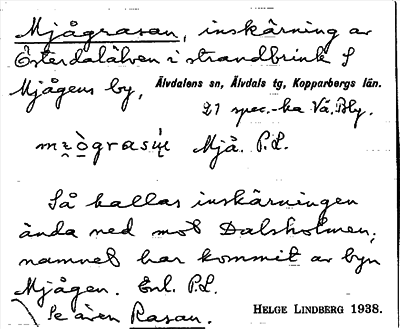 Mjågrasan, inskärning av
Österdalälven i strandbrink S
Mjågens by, Älvdalens sn, Älvdals tg, Kopparbergs län.
21 spec.-ka Vä. Bly.
Mjå. P.L.
Så kallas inskärningen
ända ned mot Dalsholmen;
namnet har kommit av byn
Mjågen. Enl. P.L.
Se även Rasan. HELGE LINDBERG 1938.